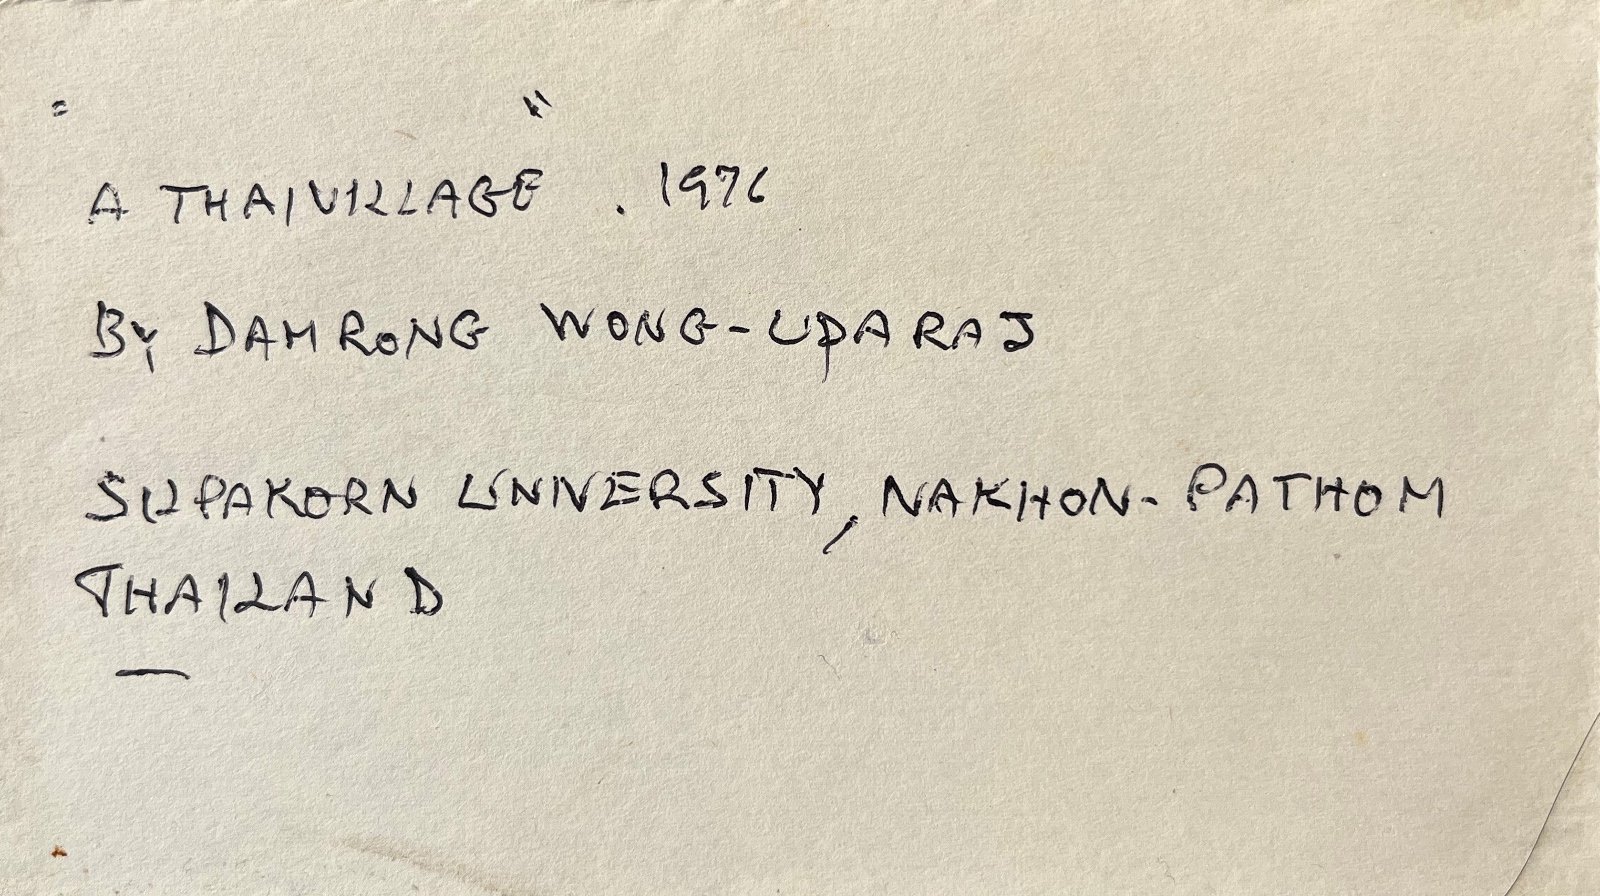 "A THAI VILLAGE" . 1976
By DAMRONG WONG-UPARAJ
SILPAKORN UNIVERSITY, NAKHON-PATHOM
THAILAND